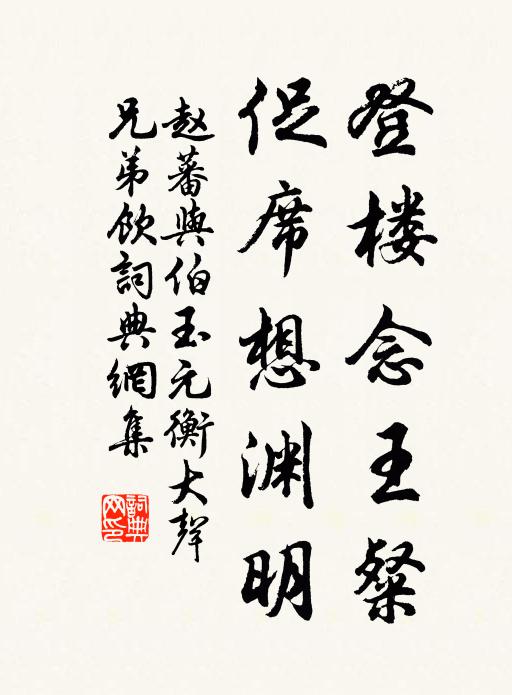 登楼念王粲
促席想渊明
赵蕃與伯玉元衡大聲
兄弟飲詞典網集
詞典
网印